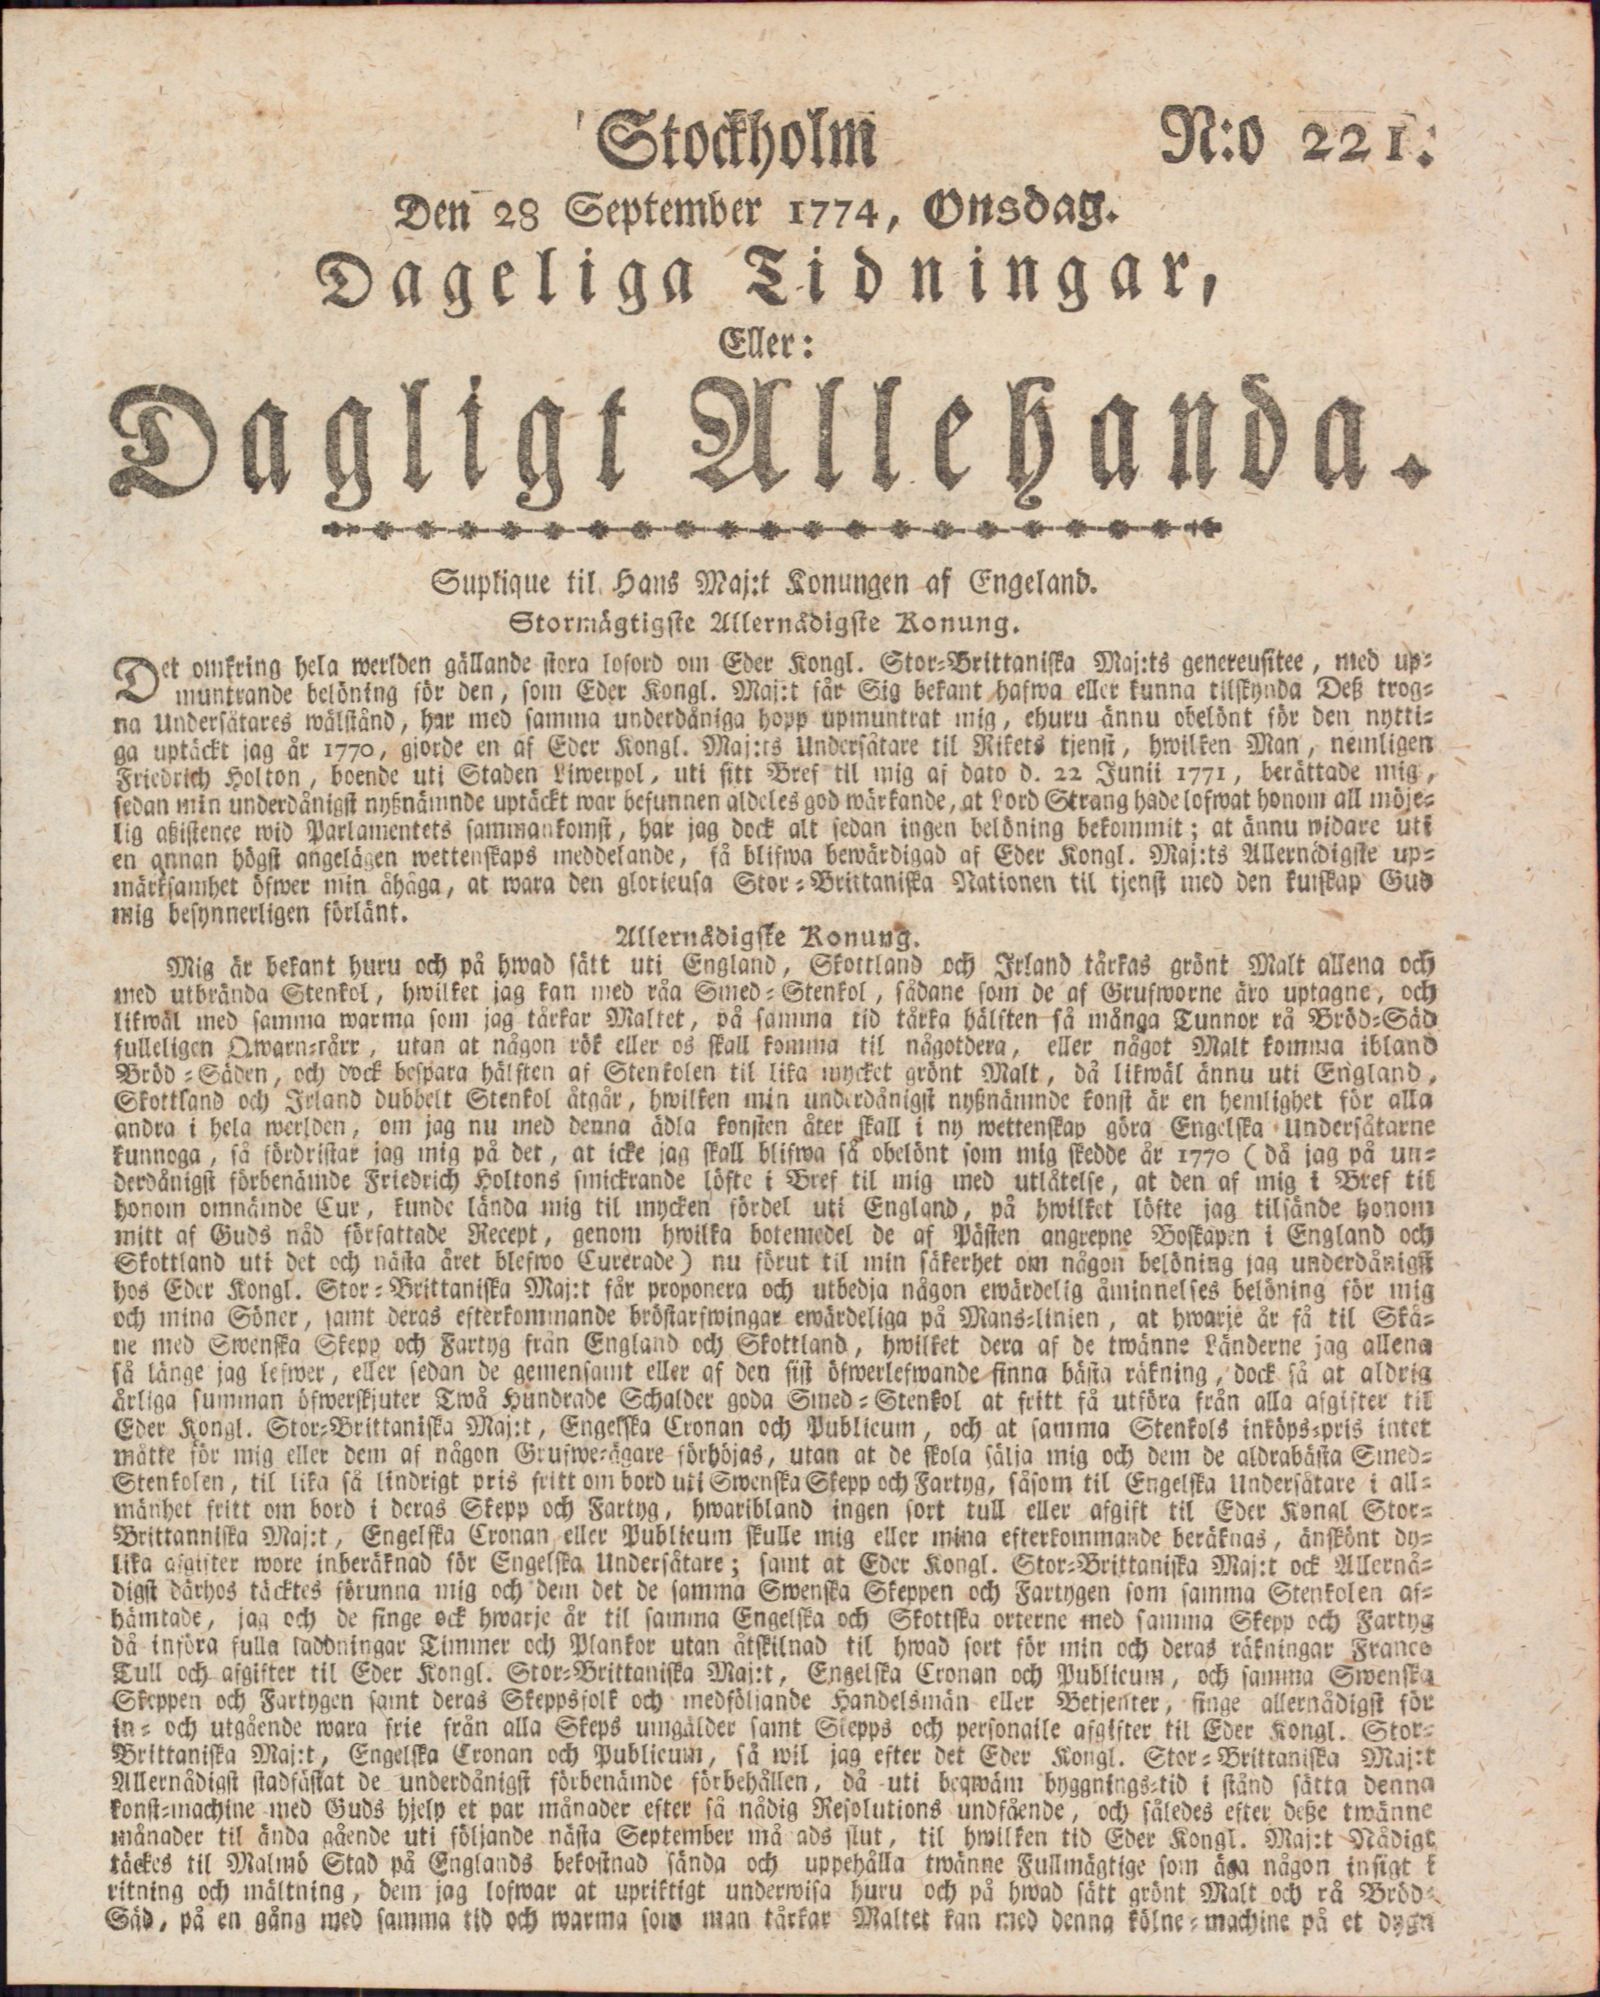 Stockholm N:o 221.
Den 28 September 1774, Onsdag.
Dageliga Tidningar,
Eller:
Dagligt Allehanda.
Suplique til Hans Maj:t Konungen af Engeland.
Stormägtigste Allernådigste Konung.
Det omkring hela werlden gällande stora loford om Eder Kongl. Stor-Brittaniska Maj:ts genereusitee, med up-
muntrande belöning för den, som Eder Kongl. Maj:t får Sig bekant hafwa eller kunna tilskynda Deß trog-
na Undersåtares wälstånd, har med samma underdåniga hopp upmuntrat mig, ehuru ännu obelönt för den nytti-
ga uptäckt jag år 1770, gjorde en af Eder Kongl. Maj:ts Undersåtare til Rikets tjenst, hwilken Man, nemligen
Friedrich Holton, boende uti Staden Liwerpol, uti sitt Bref til mig af dato d. 22 Junii 1771, berättade mig,
sedan min underdånigst nyßnämnde uptäckt war befunnen aldeles god wärkande, at Lord Strang hade lofwat honom all möje-
lig aßistence wid Parlamentets sammankomst, har jag dock alt sedan ingen belöning bekommit; at ännu widare uti
en annan högst angelägen wettenskaps meddelande, få blifwa bewärdigad af Eder Kongl. Maj:ts Allernådigste up-
märksamhet öfwer min åhåga, at wara den glorieusa Stor-Brittaniska Nationen til tjenst med den kunskap Gud
mig besynnerligen förlänt.
Allernådigste Konung.
Mig är bekant huru och på hwad sätt uti England, Skottland och Irland tårkas grönt Malt allena och
med utbrända Stenkol, hwilket jag kan med råa Smed-Stenkol, sådane som de af Grufworne äro uptagne, och
likwäl med samma warma som jag tårkar Maltet, på samma tid tårka hälften så många Tunnor rå Bröd-Säd
fulleligen Qwarn-tårr, utan at någon rök eller os skall komma til någotdera, eller något Malt komma ibland
Bröd-Säden, och dock bespara hälften af Stenkolen til lika mycket grönt Malt, då likwäl ännu uti England,
Skottland och Irland dubbelt Stenkol åtgår, hwilken min underdånigst nyßnämnde konst är en hemlighet för alla
andra i hela werlden, om jag nu med denna ädla konsten åter skall i ny wettenskap göra Engelska Undersåtarne
kunnoga, så fördristar jag mig på det, at icke jag skall blifwa så obelönt som mig skedde år 1770 (då jag på un-
derdånigst förbenämde Friedrich Holtons smickrande löfte i Bref til mig med utlåtelse, at den af mig i Bref til
honom omnämde Cur, kunde lända mig til mycken fördel uti England, på hwilket löfte jag tilsände honom
mitt af Guds nåd författade Recept, genom hwilka botemedel de af Pästen angrepne Boskapen i England och
Skottland uti det och nästa året blefwo Curerade) nu förut til min säkerhet om någon belöning jag underdånigst
hos Eder Kongl. Stor-Brittaniska Maj:t får proponera och utbedja någon ewärdelig åminnelses belöning för mig
och mina Söner, samt deras efterkommande bröstarfwingar ewärdeliga på Mans-linien, at hwarje år få til Skå-
ne med Swenska Skepp och Fartyg från England och Skottland, hwilket dera af de twänne Länderne jag allena
så länge jag lefwer, eller sedan de gemensamt eller af den sist öfwerlefwande finna bästa räkning, dock så at aldrig
årliga summan öfwerskjuter Twå Hundrade Schalder goda Smed-Stenkol at fritt få utföra från alla afgifter til
Eder Kongl. Stor-Brittaniska Maj:t, Engelska Cronan och Publicum, och at samma Stenkols inköps-pris intet
måtte för mig eller dem af någon Grufwe-ägare förhöjas, utan at de skola sälja mig och dem de aldrabästa Smed-
Stenkolen, til lika så lindrigt pris fritt om bord uti Swenska Skepp och Fartyg, såsom til Engelska Undersåtare i all-
mänhet fritt om bord i deras Skepp och Fartyg, hwaribland ingen sort tull eller afgift til Eder Kongl Stor-
Brittanniska Maj:t, Engelska Cronan eller Publicum skulle mig eller mina efterkommande beräknas, änskönt dy-
lika afgifter wore inberäknad för Engelska Undersåtare; samt at Eder Kongl. Stor-Brittaniska Maj:t ock Allernå-
digst därhos täcktes förunna mig och dem det de samma Swenska Skeppen och Fartygen som samma Stenkolen af-
hämtade, jag och de finge ock hwarje år til samma Engelska och Skottska orterne med samma Skepp och Fartyg
då införa fulla laddningar Timmer och Plankor utan åtskilnad til hwad sort för min och deras räkningar Franco
Tull och afgifter til Eder Kongl. Stor-Brittaniska Maj:t, Engelska Cronan och Publicum, och samma Swenska
Skeppen och Fartygen samt deras Skeppsfolk och medföljande Handelsmän eller Betjenter, finge allernådigst för
in- och utgående wara frie från alla Skeps umgälder samt Skepps och personaile afgifter til Eder Kongl. Stor-
Brittaniska Maj:t, Engelska Cronan och Publicum, så wil jag efter det Eder Kongl. Stor-Brittaniska Maj:t
Allernådigst stadfästat de underdånigst förbenämde förbehållen, då uti beqwäm byggnings-tid i stånd sätta denna
konst-machine med Guds hjelp et par månader efter så nådig Resolutions undfående, och således efter deße twänne
månader til ända gående uti följande nästa September månads slut, til hwilken tid Eder Kongl. Maj:t Nådigt
täckes til Malmö Stad på Englands bekostnad sända och uppehålla twänne Fullmägtige som äga någon insigt i
ritning och mältning, dem jag lofwar at upriktigt underwisa huru och på hwad sätt grönt Malt och rå Bröd-
Säd, på en gång med samma tid och warma som man tårkar Maltet kan med denna kölne-machine på et dygn